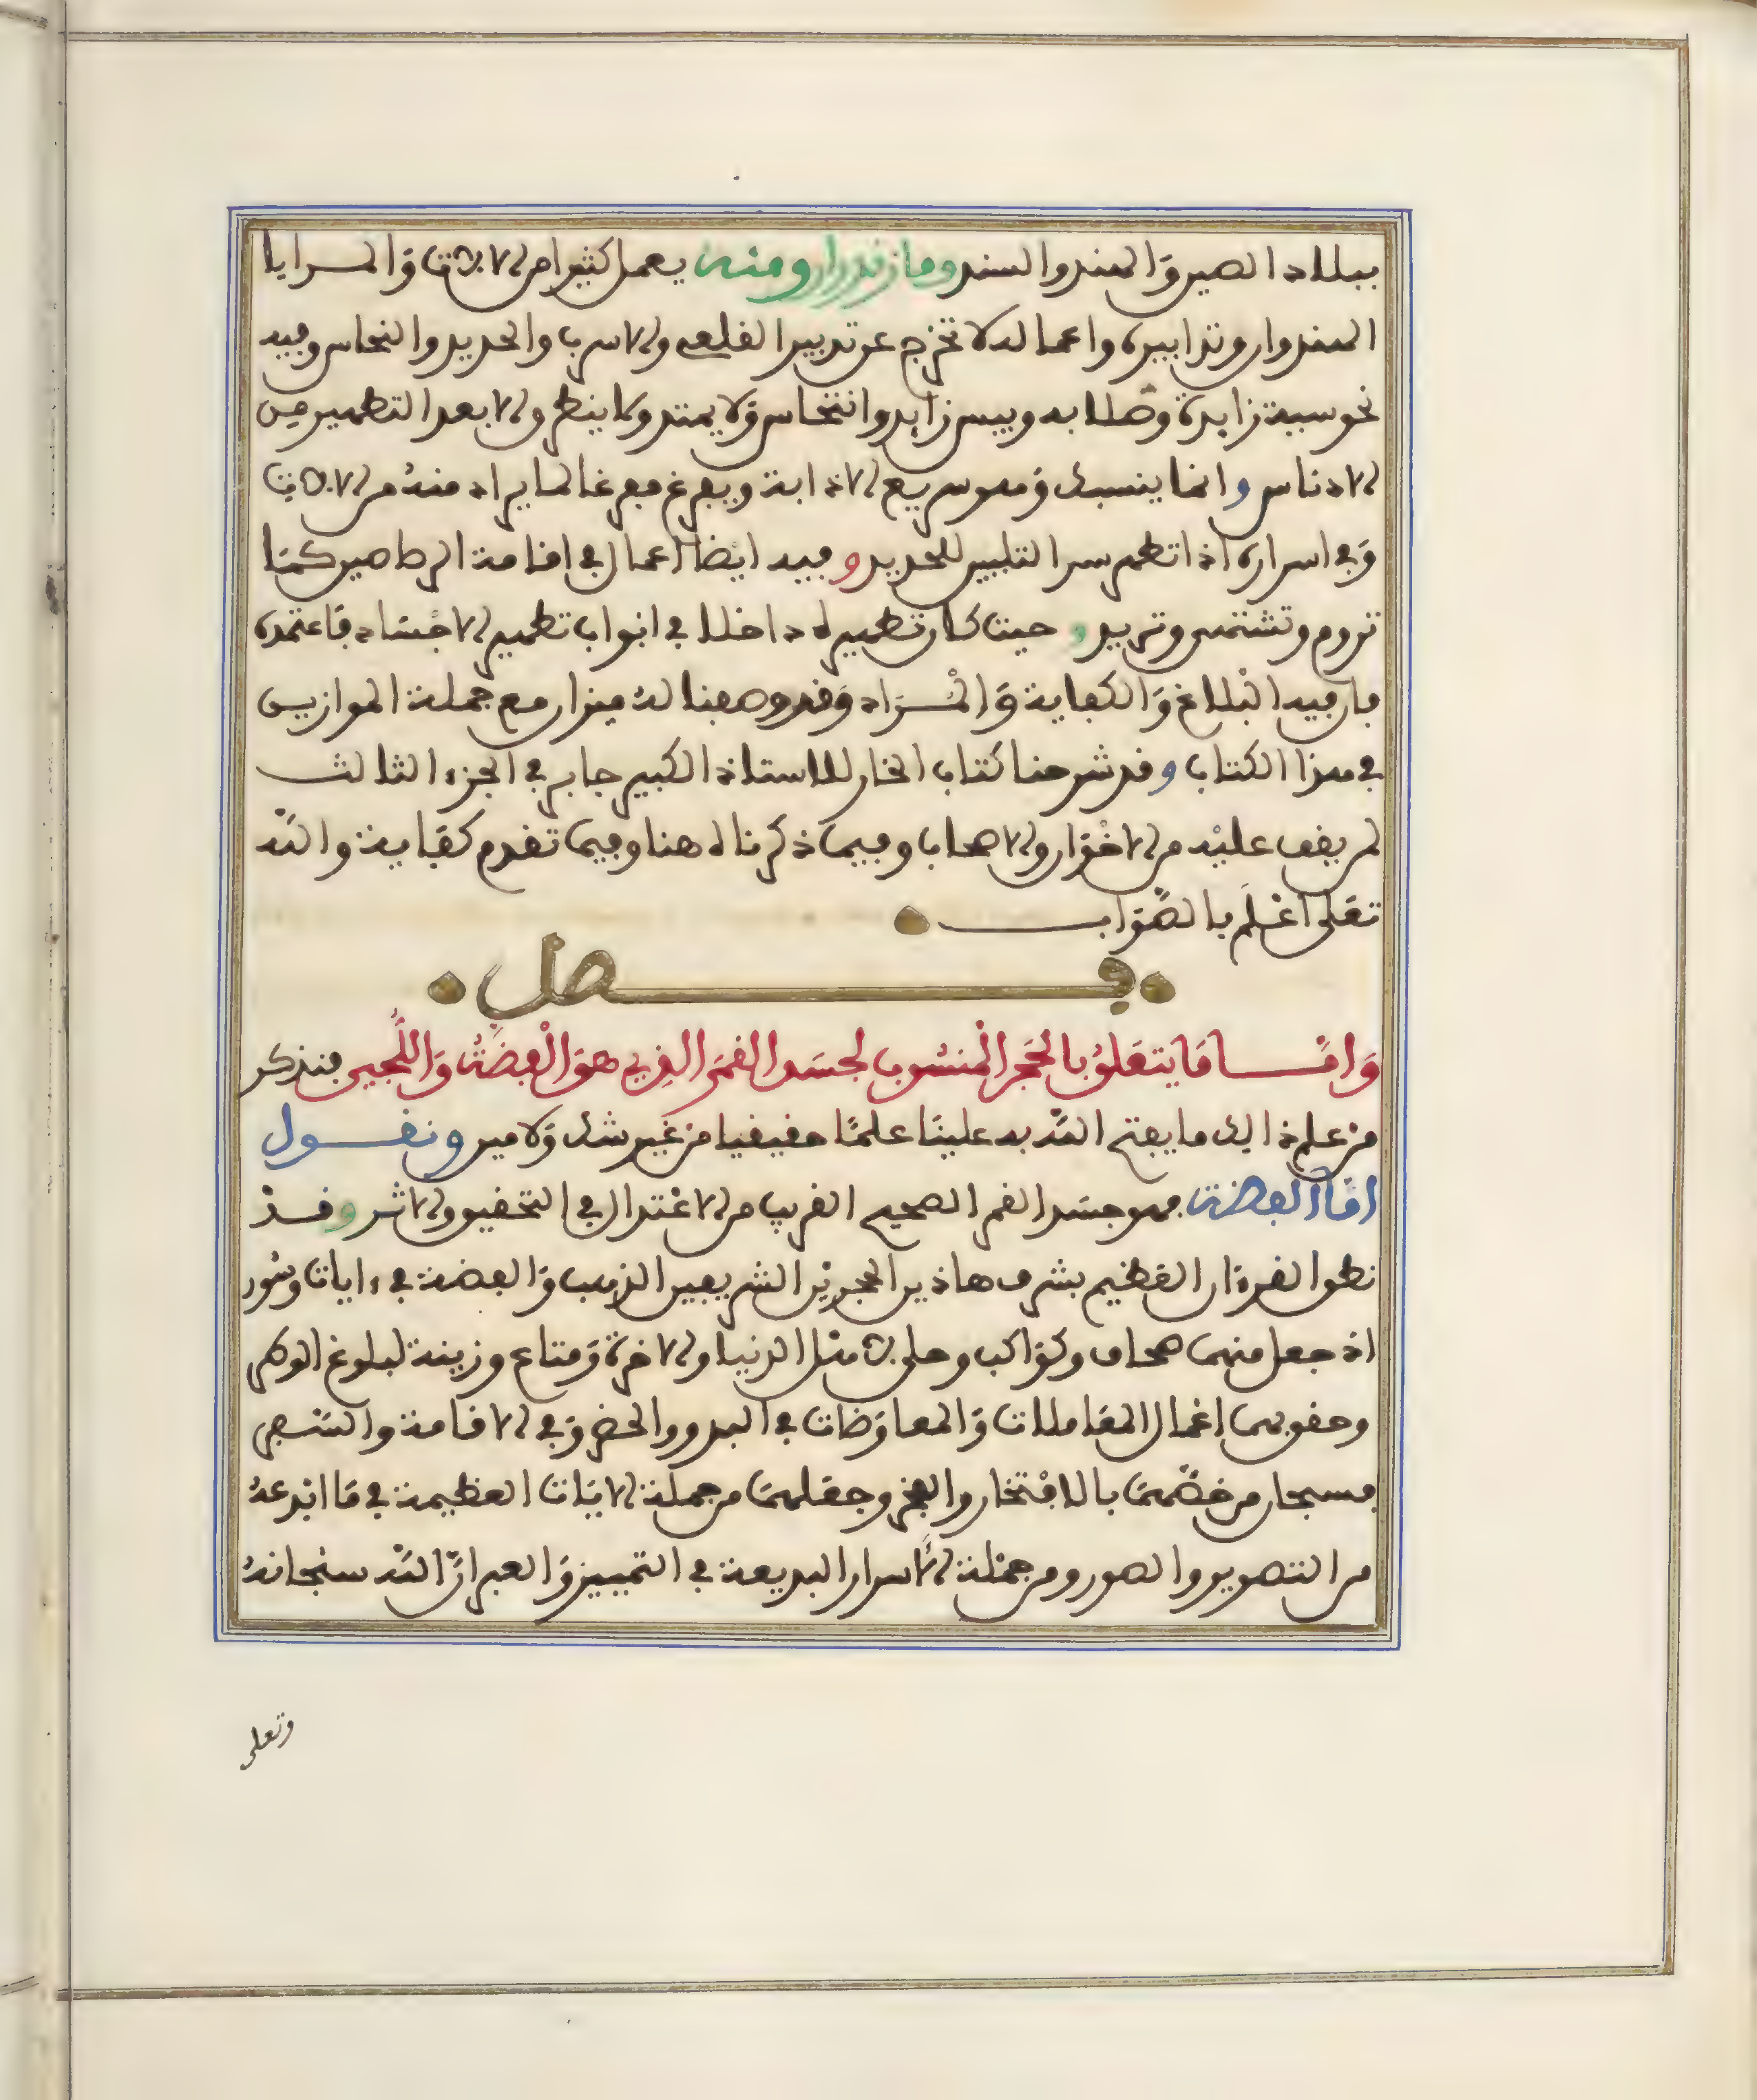 ببلاد الصين والهند والسند ومازندران ومنه يعمل كثيرا من الالات والمرايا
الهندوان وتدابيره واعماله لا تخرج عن تدبير القلعى والاسرب والحديد والنحاس وفيه
نحوسية زايدة وصلابه ويبس زايد وانتحاس ولا يمتد ولا ينطرق الا بعد التطهير من
الادناس وانما ينسبك وهو سريع الاذابة ويفرغ مفرغا لما يراد منه من الالات
وفي اسراره اذا تطهر سر التليين للحديد وفيه ايضا اعمال في اقامة الرصاصين كما
تروم وتشتهى وتريد وحيث كان تطهيره داخلا في ابواب تطهير الاجساد فاعتمده
فان فيه البلاغ والكفاية والمراد وقد وضعنا له ميزان مع جملة الموازين
في هذا الكتاب وقد شرحنا كتاب الخار للاستاذ الكبير جابر في الجزء الثالث
لمن يقف عليه من الاخوان والاصحاب وفيما ذكرناه هنا وفيما تقدم كفاية والله
تعلى اعلم بالصواب
فصل
واما ما يتعلق بالحجر المنسوب لجسد القمر الذي هو الفضة واللجين فنذكر
من علم ذالك ما يفتح الله به علينا علما حقيقيا من غير شك ولا مين ونقول
اما الفضة فهو جسد القمر الصحيح القريب من الاعتدال في التحقيق والاثر وقد
نطق القرءان العظيم بشرف هاذين الحجرين الشريفين الذهب والفضة في ءايات وسور
اذ جعل منهما صحاف وكواكب وحلى في مثل الدنيا والاخرة ومتاع وزينة لبلوغ الوطر
وحقق بهما اعمال المعاملات والمعاوضات في البدو والحضر وفي الاقامة والسفر
فسبحان من خصهما بالافتخار والفخر وجعلهما من جملة الايات العظيمة في ما ابدعه
من التصوير والصور ومن جملة الاسرار البديعة في التمييز والعبر ان الله سبحانه
وتعلى